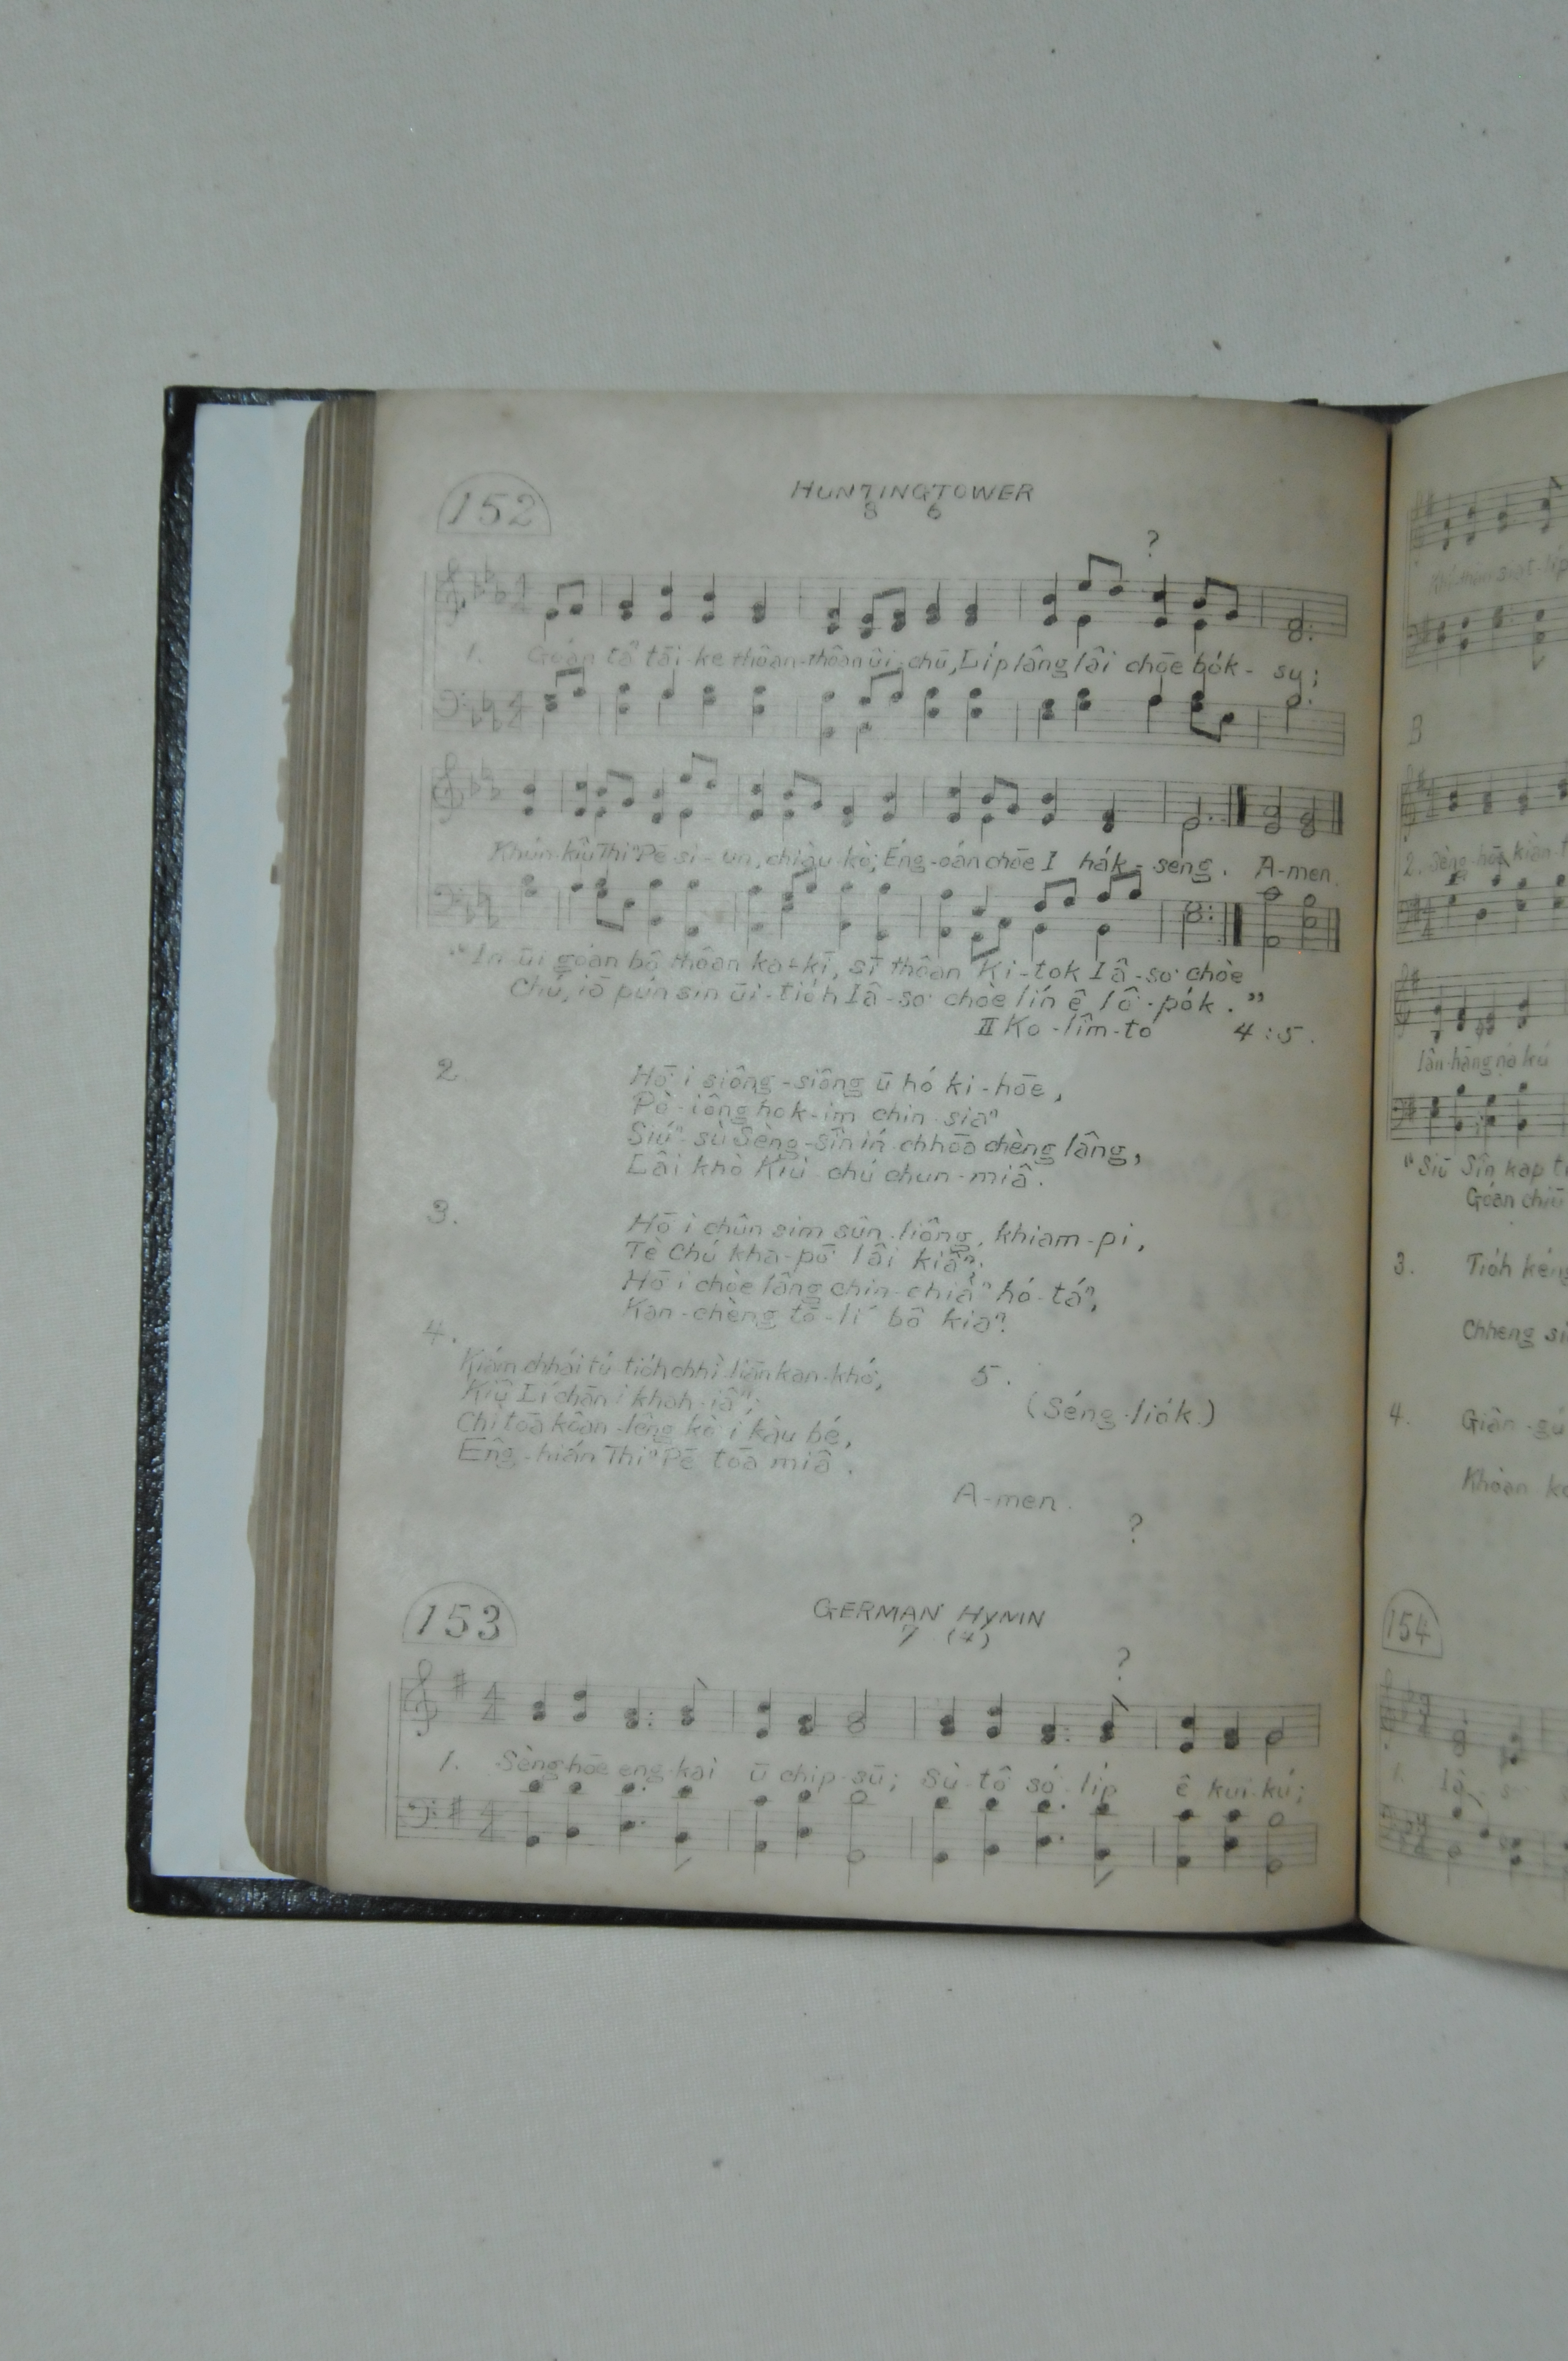 152
HUNTINGTOWER
8 6
?
1. Goán tō tāi-ke thôan-thôan ûi-chū, Li̍p lâng lâi chōe bo̍k-su;
Khún-kiû Thiⁿ Pē sì-un, chiàu-kò; Éng-oán chōe I ha̍k-seng. A-men.
"In-ūi góan bô thôan ka-kī, sī thôan Ki-tok Iâ-so· chòe
Chú, iā pún sin ūi-tio̍h Iâ-so· chòe lín ê lô-po̍k."
II Ko-lîm-to 4:5.
2. Hō· i siông-siông ū hó ki-hōe,
Pò-iông hok-im chin-siaⁿ
Siúⁿ-sù Sèng-sîn ín chhōa chèng lâng,
Lâi khò Kiù-chú chun-miâ.
3. Hō· i chûn sim sûn-liông, khiam-pi,
Tè Chú kha-pō· lâi kiâⁿ;
Hō· i chòe lâng chin-chiàⁿ hó-táⁿ,
Kan-chèng tō-lí bô kiaⁿ.
4.
Kiám-chhái tú-tio̍h chhì-liān kan-khó·,
Kiû Lí chān i khah-iâⁿ;
Chi toā kôan-lêng kò· i kàu bé,
Êng-hián Thiⁿ Pē toā miâ.
5.
(Séng-lio̍k)
A-men.
?
153
GERMAN HYMN
7 (4)
?
1. Sèng-hōe eng-kai ū chip-sū; Sù-tô· só· li̍p ê kui-kú;
B
2. Sèng-hōe
"Siū Sîn kap
Góan
3. Tio̍h
Chheng
4. Giân-gú
Khòan
154